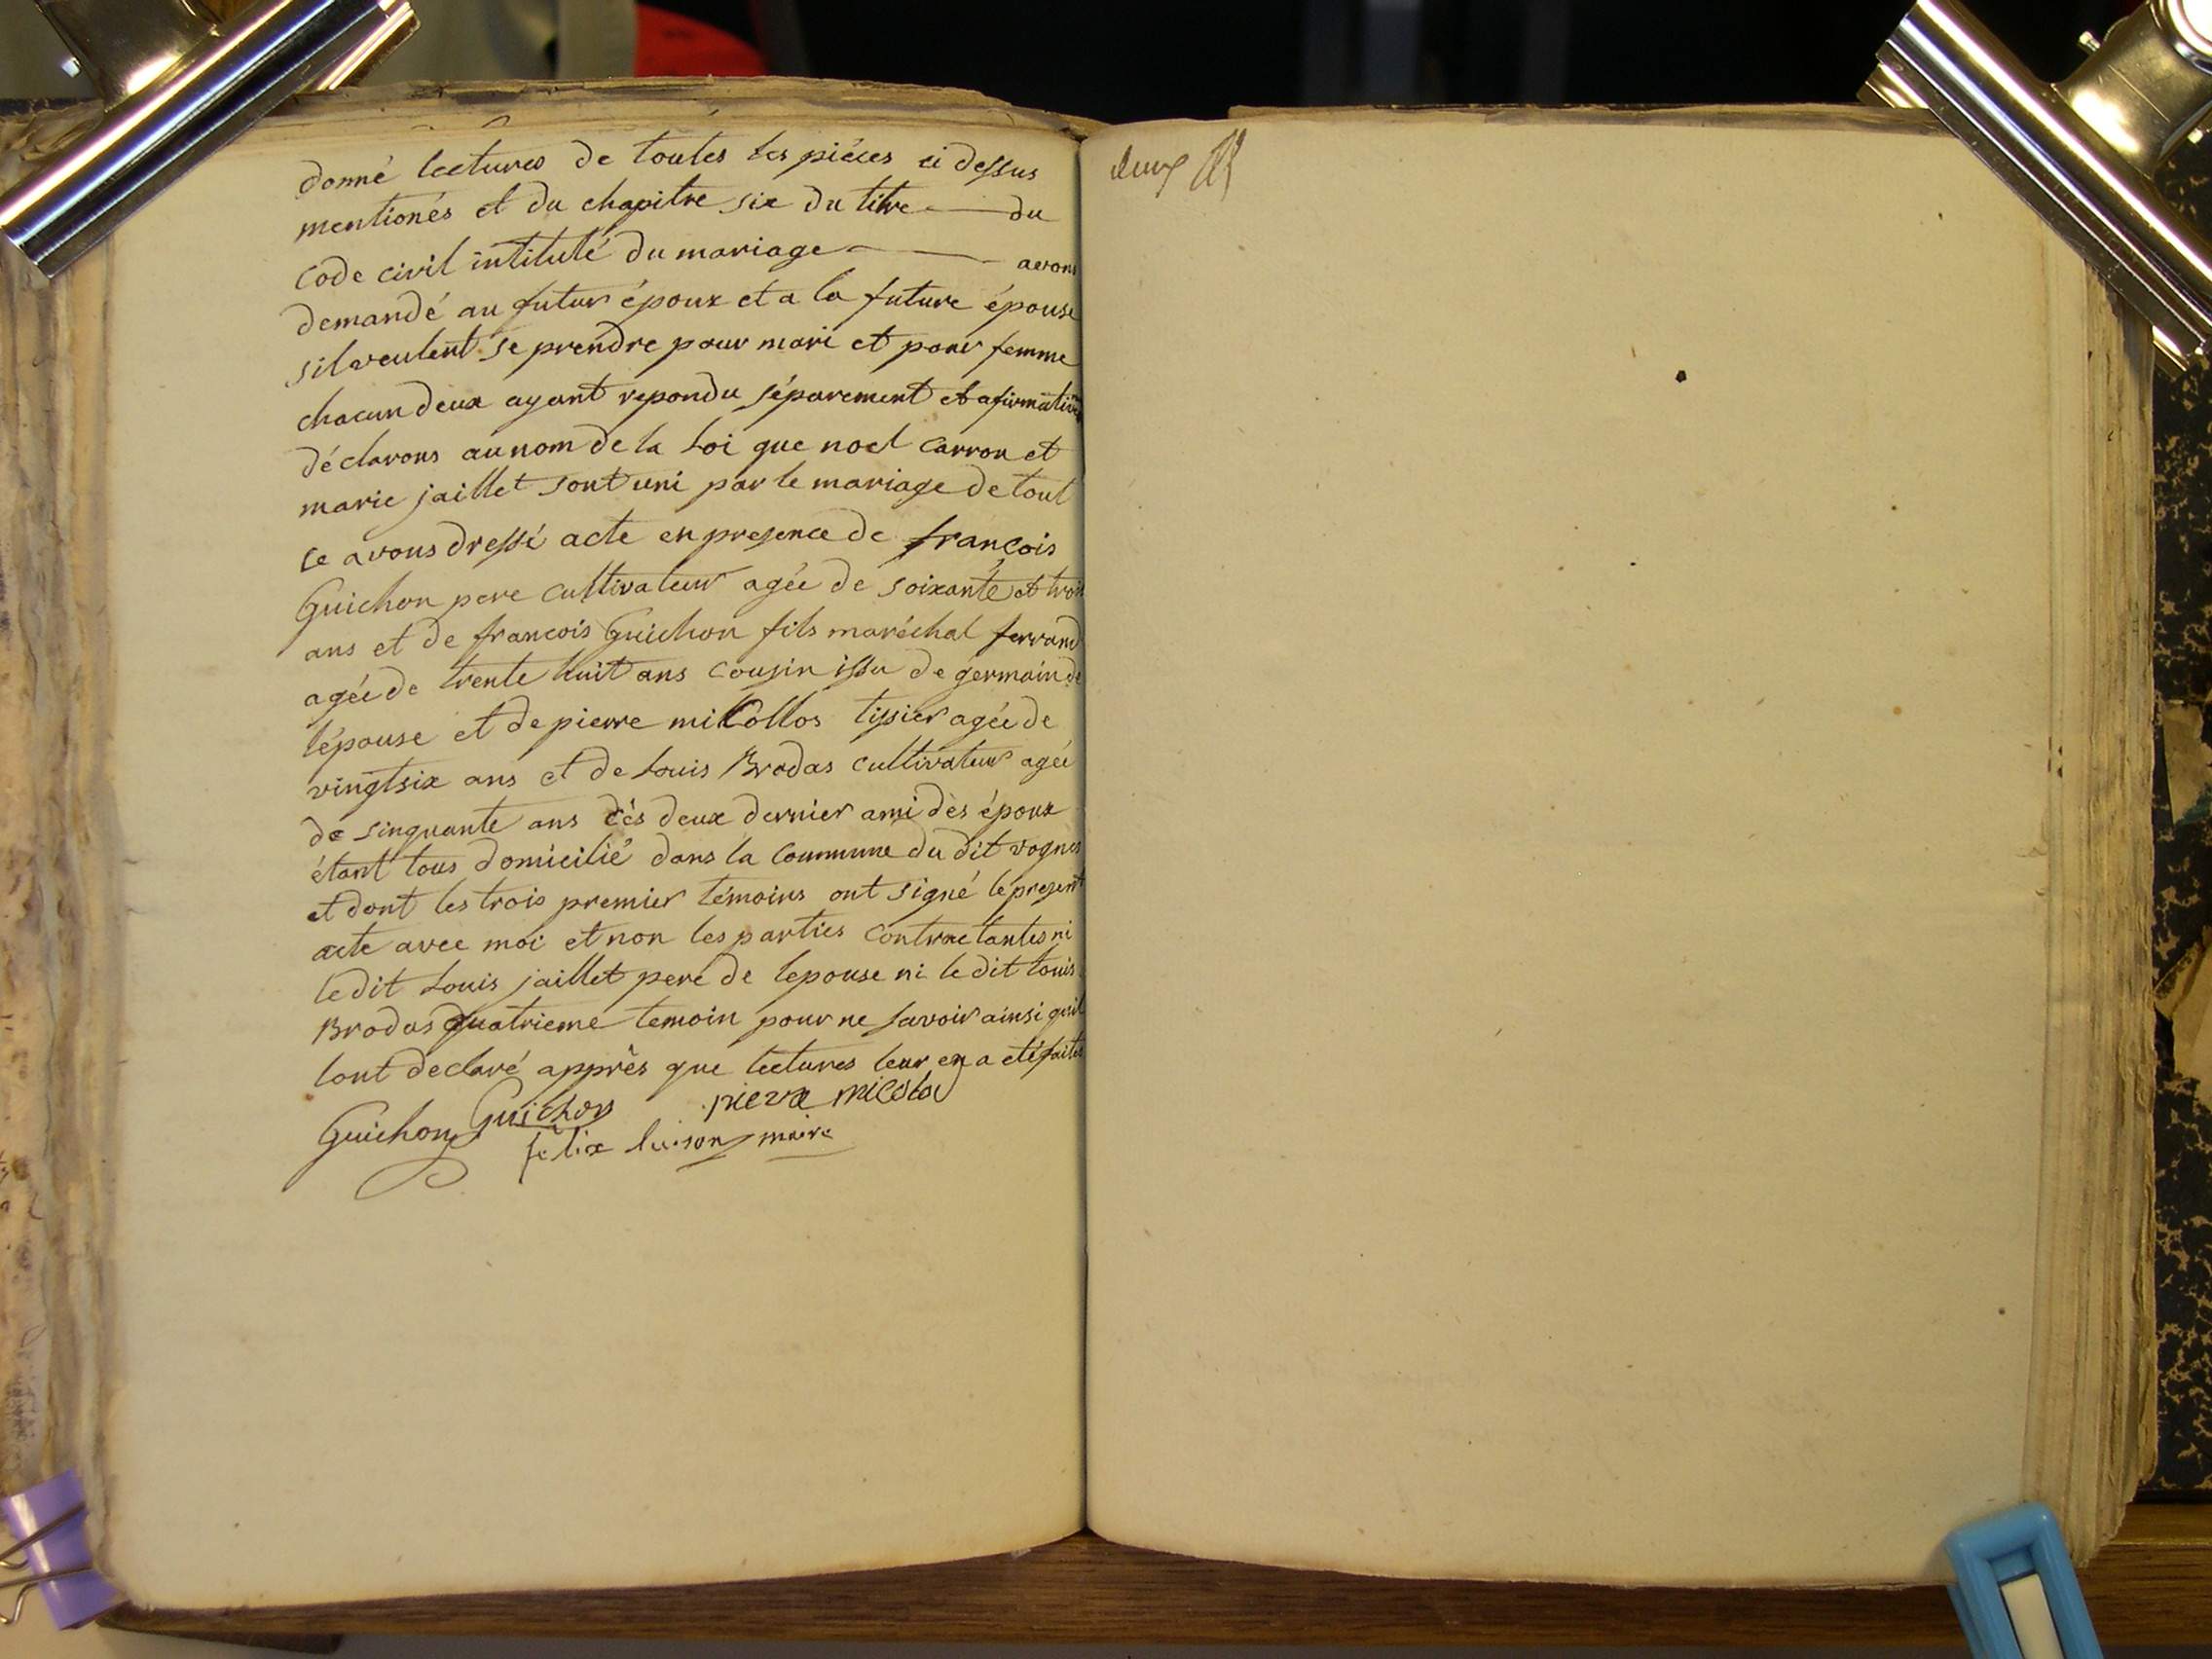 donné lectures de toutes les piéces ci dessus
mentionés et du chapitre six du titre du
code civil intitulé du mariage avons
demandé au futur époux et a la future épouse
sil veulent se prendre pour mari et pour femme
chacun deux ayant repondu séparement et afirmative
déclarons au nom de la Loi que noel Carron et
marie jaillet sont uni par le mariage de tout
ce avons dressé acte en presence de françois
Guichon pere cultivateur agée de soixante et trois
ans et de francois Guichon fils maréchal ferrand
agée de trente huit ans cousin issu de germain de
lépouse et de pierre micollos tissier agée de
vingtsix ans et de Louis Brodas cultivateur agée
de sinquante ans cés deux dernier ami dès époux
étant tous domicilié dans la commune du dit vognes
et dont les trois premier témoins ont signé le present
acte avec moi et non les parties contractantes ni
le dit Louis jaillet pere de lepouse ni le dit Louis
Brodas quatrieme temoin pour ne savoir ainsi quil
lont declaré apprês que lectures leur en a eté faites
Guichon Guichon pierre micolod
félix luison maire